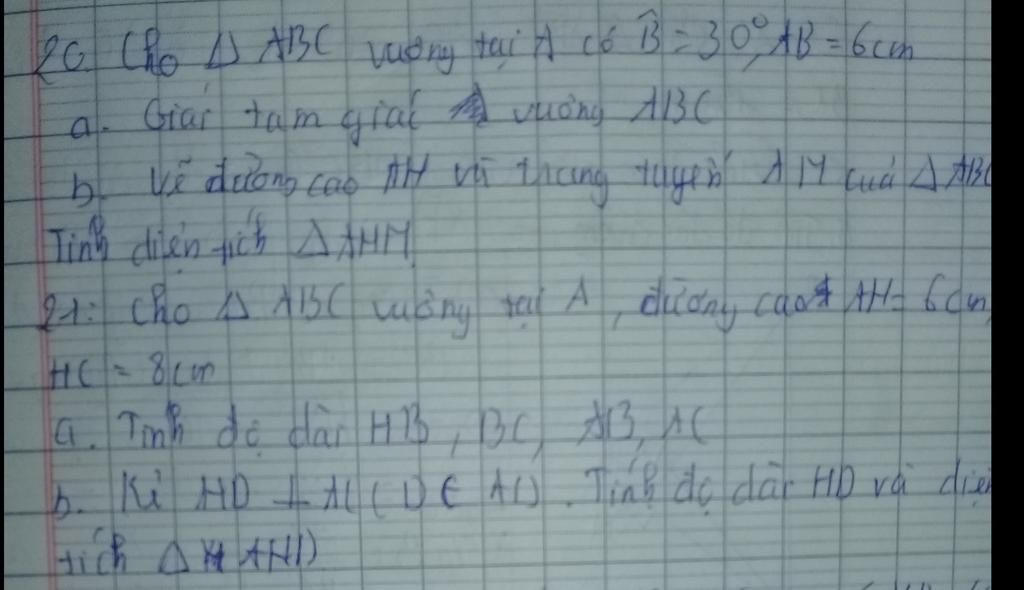 20. Cho Δ ABC vuông tại A có B̂ = 30°, AB = 6cm
a. Giải tam giác vuông ABC
b. Vẽ đường cao AH và trung tuyến AM của Δ ABC
Tính diện tích Δ AHM
21: Cho Δ ABC vuông tại A, đường cao AH = 6cm,
HC = 8cm
a. Tính độ dài HB, BC, AB, AC
b. Kẻ HD ⊥ AC (D ∈ AC). Tính độ dài HD và diện
tích Δ AHD